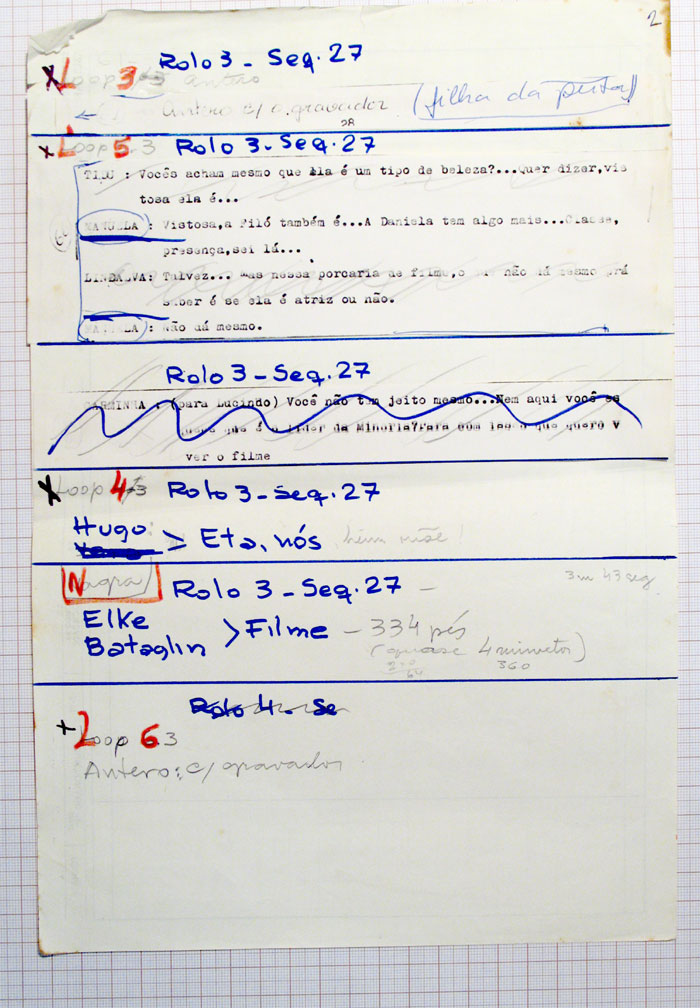 2
Rolo 3 - Seq. 27
X Loop 3/3 Antero
← Antero c/ o gravador (filha da puta)
OR
x Loop 5.3 Rolo 3 - Seq. 27
TITU : Vocês acham mesmo que ela é um tipo de beleza?...Quer dizer,vis
tosa ela é...
MANUELA : Vistosa,a Filó também é...A Daniela tem algo mais...Classe,
presença,sei lá...
LINDALVA: Talvez... mas nessa porcaria de filme,o que não dá mesmo prá
saber é se ela é atriz ou não.
MANUELA : Não dá mesmo.
Rolo 3 - Seq. 27
CARMINHA : (para Lucindo) Você não tem jeito mesmo...Nem aqui você es
quece que é o líder da Minoria?Para com isso que quero v
ver o filme
X Loop 4/3 Rolo 3 - Seq. 27
Hugo > Eta, nós, hein mãe!
Nagra Rolo 3 - Seq. 27 - 3m 43 seg
Elke
Bataglin > Filme - 334 pés
(quase 4 minutos)
360
Rolo 4 - Se
+ Loop 6.3
Antero: c/ gravador